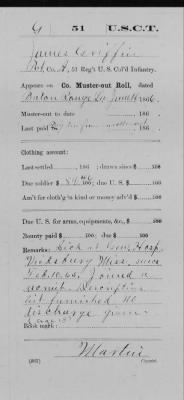 G | 51 | U.S.C.T.
James Griffin
Pvt, Co. A, 51 Reg't U. S. Col'd Infantry.
Appears on Co. Muster-out Roll, dated
Baton Rouge La June 16, 1866.
Muster-out to date 186 .
Last paid to 186 .
Clothing account:
Last settled 186 ; drawn since $ 100
Due soldier $ 100; due U. S. $ 100
Am't for cloth'g in kind or money adv'd $ 100
Due U. S. for arms, equipments, &c., $ 100
Bounty paid $ 100; due $ 100
Remarks: Sick at Genl Hosp.
Vicksburg Miss. since
Feb. 10. 64. Joined a
Descriptive
list furnished No
discharge given
Book mark:
Martin
(861) Copyist.